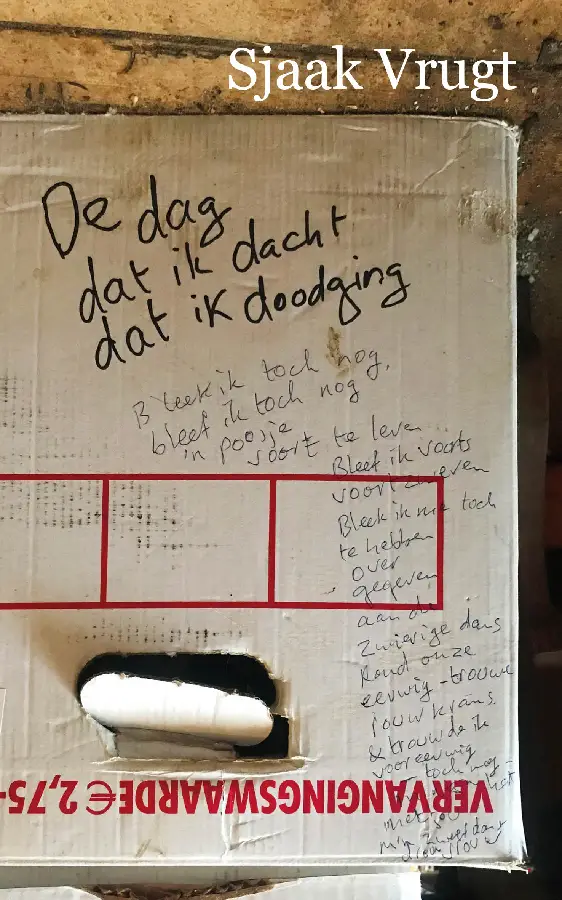 Sjaak Vrugt
De dag
dat ik dacht
dat ik doodging
Bleek ik toch nog,
bleef ik toch nog
in poosje
voort te leven
Bleef ik voorts
voort zweven
Bleek ik me toch
te hebben
over
gegeven
aan die
zwierige dans
Rond onze
eeuwig-trouwe
rouwkrans
& trouwde ik
voor eeuwig
toch nog
met jou
mijn
VERVANGINGSWAARDE € 2,75